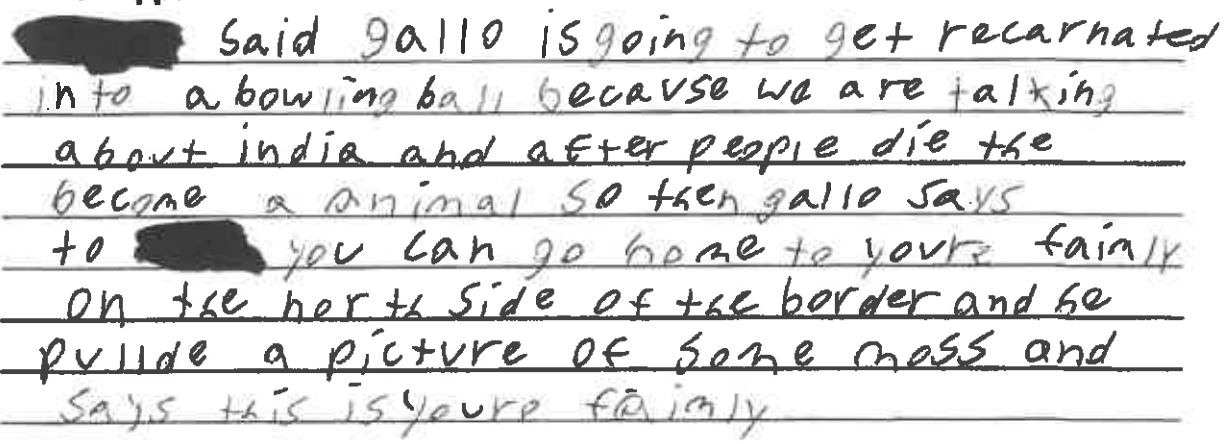 said gallo is going to get recarnated
into a bowling ball because we are talking
about india and after people die the
become a animal so then gallo says
to you can go home to youre faimly
on the north side of the border and he
pullde a picture of some moss and
says this is youre faimly